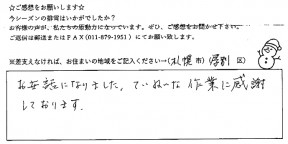 ☆ご感想をお願いします☆
今シーズンの排雪はいかがでしたか？
お客様の声が、私たちの原動力になっています。ぜひ、ご感想をお聞かせ下さい。
ご返信は郵送またはFAX(011-879-1951)にてお願い致します。
※差支えなければ、お住まいの地域をご記入ください→(札幌市)(厚別区)
お世話になりました。ていねいな作業に感謝
しております。